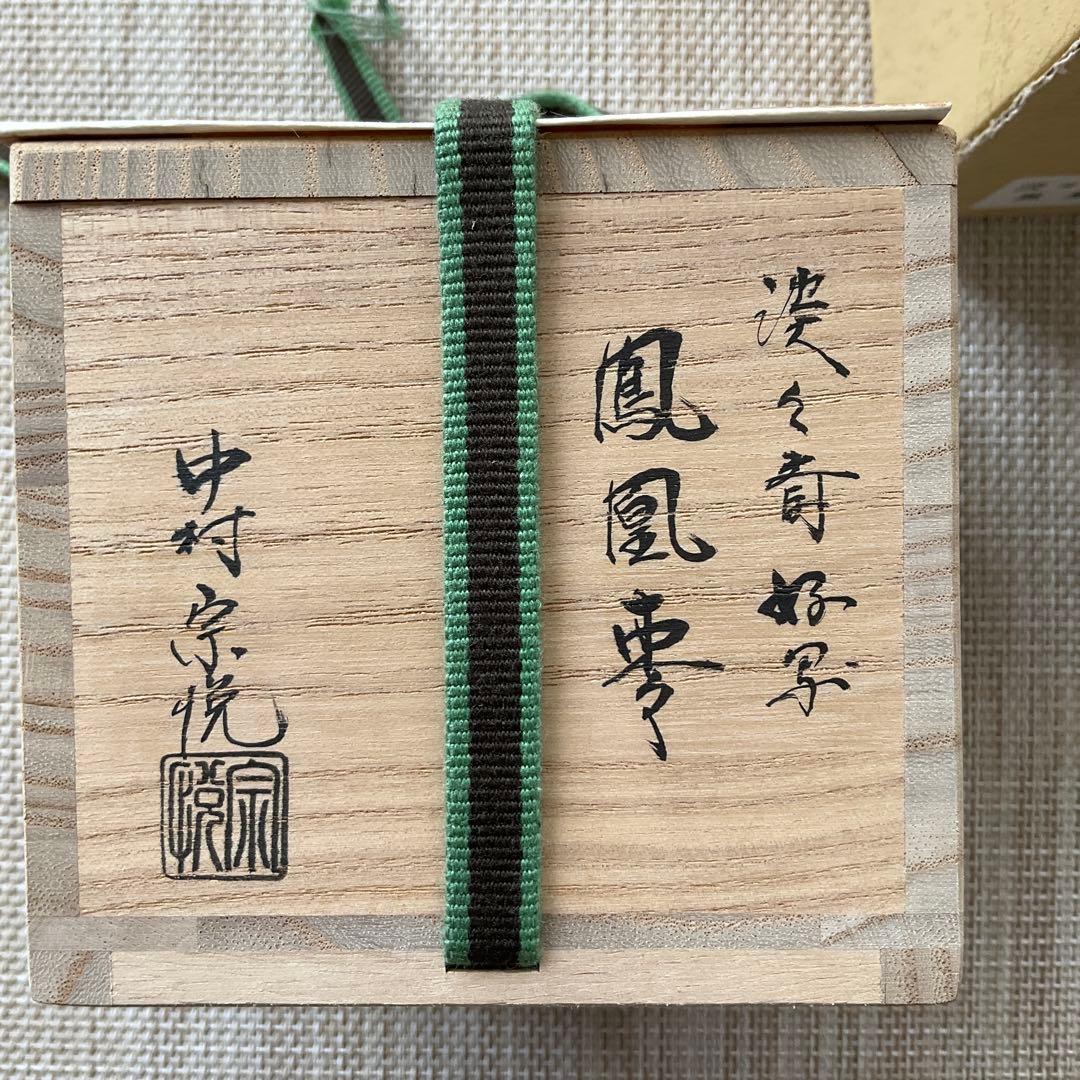 淡々斎好写
鳳凰棗
中村宗悦
宗悦